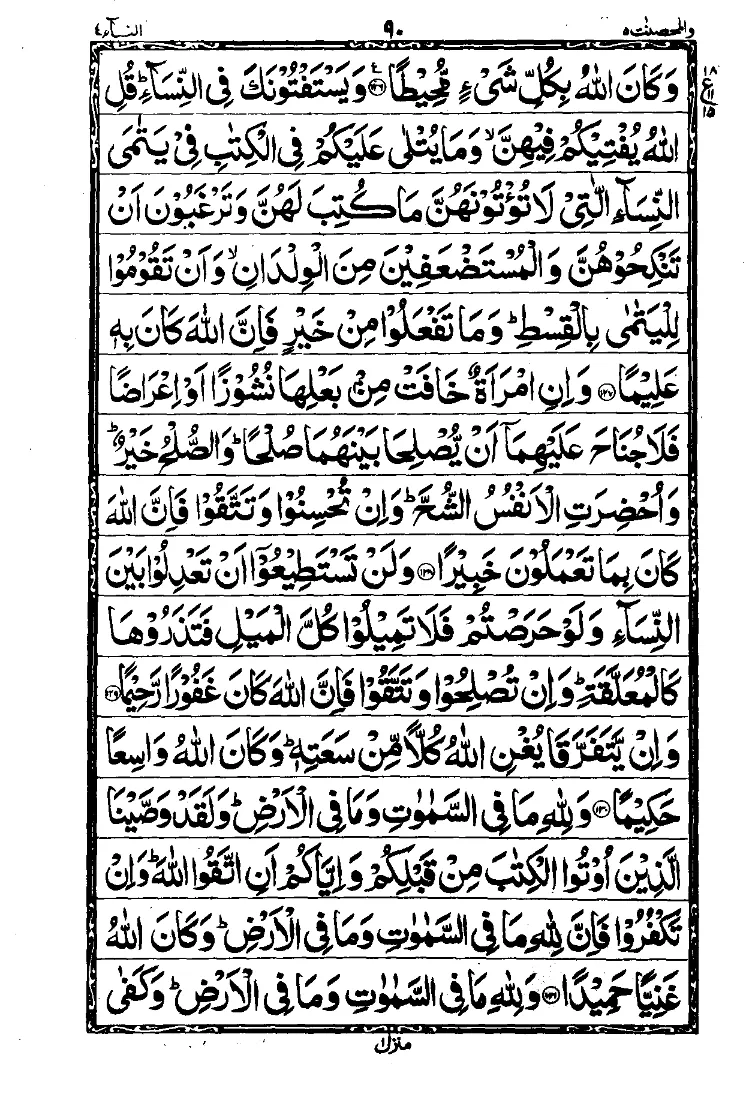 والمحصنٰت ٥ ٩٠ النسآء ٤
وَكَانَ اللّٰهُ بِكُلِّ شَیْءٍ مُّحِیْطًا ﴿۱۲۶﴾ وَیَسْتَفْتُوْنَكَ فِی النِّسَآءِ ؕ قُلِ
١٨ ع ١١ ١٥
اللّٰهُ یُفْتِیْكُمْ فِیْهِنَّ ۙ وَمَا یُتْلٰی عَلَیْكُمْ فِی الْكِتٰبِ فِیْ یَتٰمَی
النِّسَآءِ الّٰتِیْ لَا تُؤْتُوْنَهُنَّ مَا كُتِبَ لَهُنَّ وَتَرْغَبُوْنَ اَنْ
تَنْكِحُوْهُنَّ وَالْمُسْتَضْعَفِیْنَ مِنَ الْوِلْدَانِ ۙ وَاَنْ تَقُوْمُوْا
لِلْیَتٰمٰی بِالْقِسْطِ ؕ وَمَا تَفْعَلُوْا مِنْ خَیْرٍ فَاِنَّ اللّٰهَ كَانَ بِهٖ
عَلِیْمًا ﴿۱۲۷﴾ وَاِنِ امْرَاَةٌ خَافَتْ مِنْۢ بَعْلِهَا نُشُوْزًا اَوْ اِعْرَاضًا
فَلَا جُنَاحَ عَلَیْهِمَاۤ اَنْ یُّصْلِحَا بَیْنَهُمَا صُلْحًا ؕ وَالصُّلْحُ خَیْرٌ ؕ
وَاُحْضِرَتِ الْاَنْفُسُ الشُّحَّ ؕ وَاِنْ تُحْسِنُوْا وَتَتَّقُوْا فَاِنَّ اللّٰهَ
كَانَ بِمَا تَعْمَلُوْنَ خَبِیْرًا ﴿۱۲۸﴾ وَلَنْ تَسْتَطِیْعُوْۤا اَنْ تَعْدِلُوْا بَیْنَ
النِّسَآءِ وَلَوْ حَرَصْتُمْ فَلَا تَمِیْلُوْا كُلَّ الْمَیْلِ فَتَذَرُوْهَا
كَالْمُعَلَّقَةِ ؕ وَاِنْ تُصْلِحُوْا وَتَتَّقُوْا فَاِنَّ اللّٰهَ كَانَ غَفُوْرًا رَّحِیْمًا ﴿۱۲۹﴾
وَاِنْ یَّتَفَرَّقَا یُغْنِ اللّٰهُ كُلًّا مِّنْ سَعَتِهٖ ؕ وَكَانَ اللّٰهُ وَاسِعًا
حَكِیْمًا ﴿۱۳۰﴾ وَلِلّٰهِ مَا فِی السَّمٰوٰتِ وَمَا فِی الْاَرْضِ ؕ وَلَقَدْ وَصَّیْنَا
الَّذِیْنَ اُوْتُوا الْكِتٰبَ مِنْ قَبْلِكُمْ وَاِیَّاكُمْ اَنِ اتَّقُوا اللّٰهَ ؕ وَاِنْ
تَكْفُرُوْا فَاِنَّ لِلّٰهِ مَا فِی السَّمٰوٰتِ وَمَا فِی الْاَرْضِ ؕ وَكَانَ اللّٰهُ
غَنِیًّا حَمِیْدًا ﴿۱۳۱﴾ وَلِلّٰهِ مَا فِی السَّمٰوٰتِ وَمَا فِی الْاَرْضِ ؕ وَكَفٰی
منزل ١